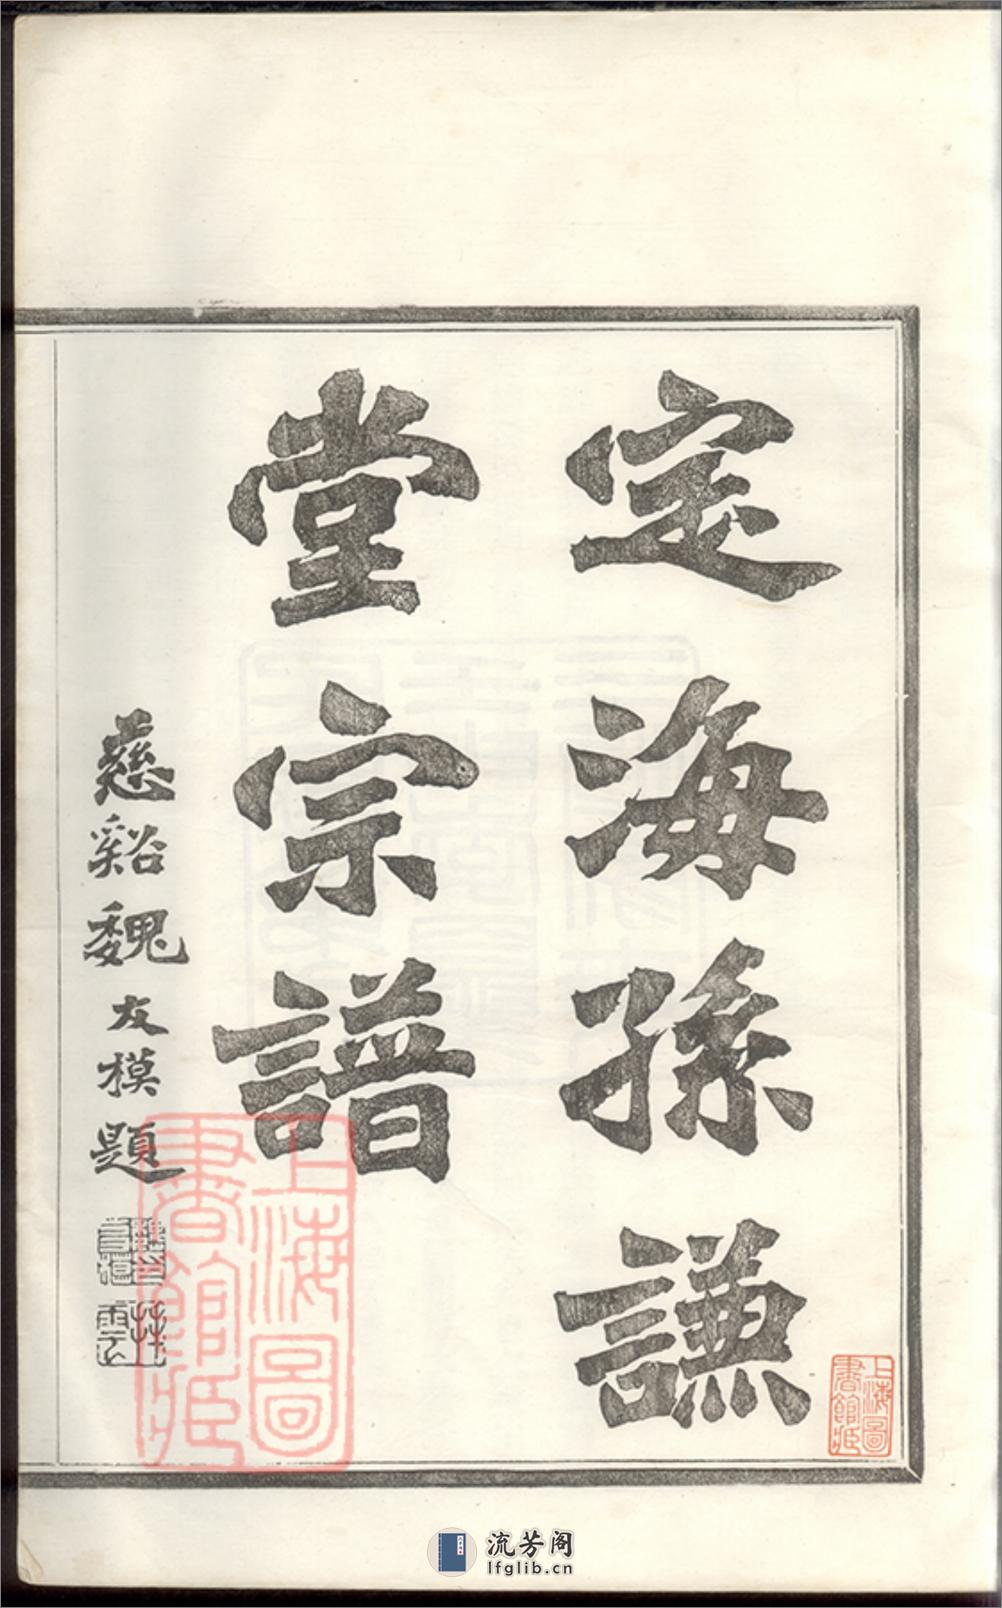 定海孫謙
堂宗譜
慈谿魏友模題
上海圖
書館藏
上海圖
書館藏
流芳阁
lfglib.cn